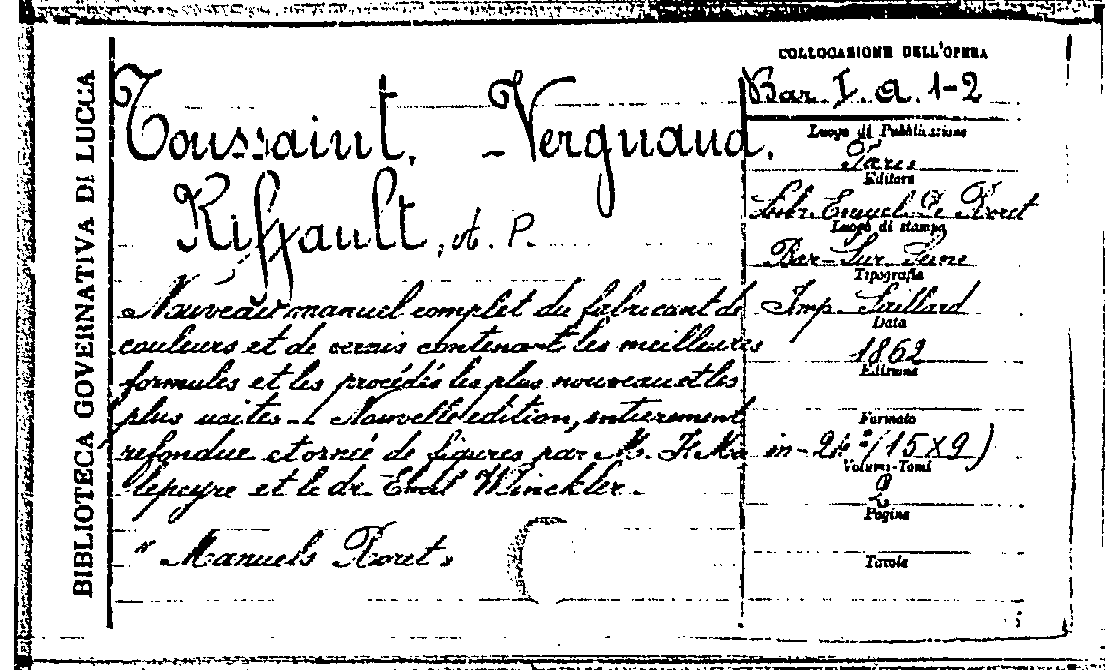 BIBLIOTECA GOVERNATIVA DI LUCCA
Toussaint, - Vergnaud,
Riffault, A. P.
Nouveau manuel complet du fabricant de
couleurs et de vernis contenant les meilleures
formules et les procédés les plus nouveau et les
plus usites - Nouvelle édition, entierement
refondue et ornée de figures par M. F. Ma
lepeyre et le dr. Emil Winckler.
" Manuels Roret "
COLLOCAZIONE DELL'OPERA
Bar. I. a. 1-2
Luogo di Pubblicazione
Paris
Editore
Roret
Luogo di stampa
Bar-Sur-Seine
Tipografia
Imp. Saillard
Data
1862
Edizione
Formato
in-24º (15X9)
Volumi-Tomi
2
Pagine
Tavole